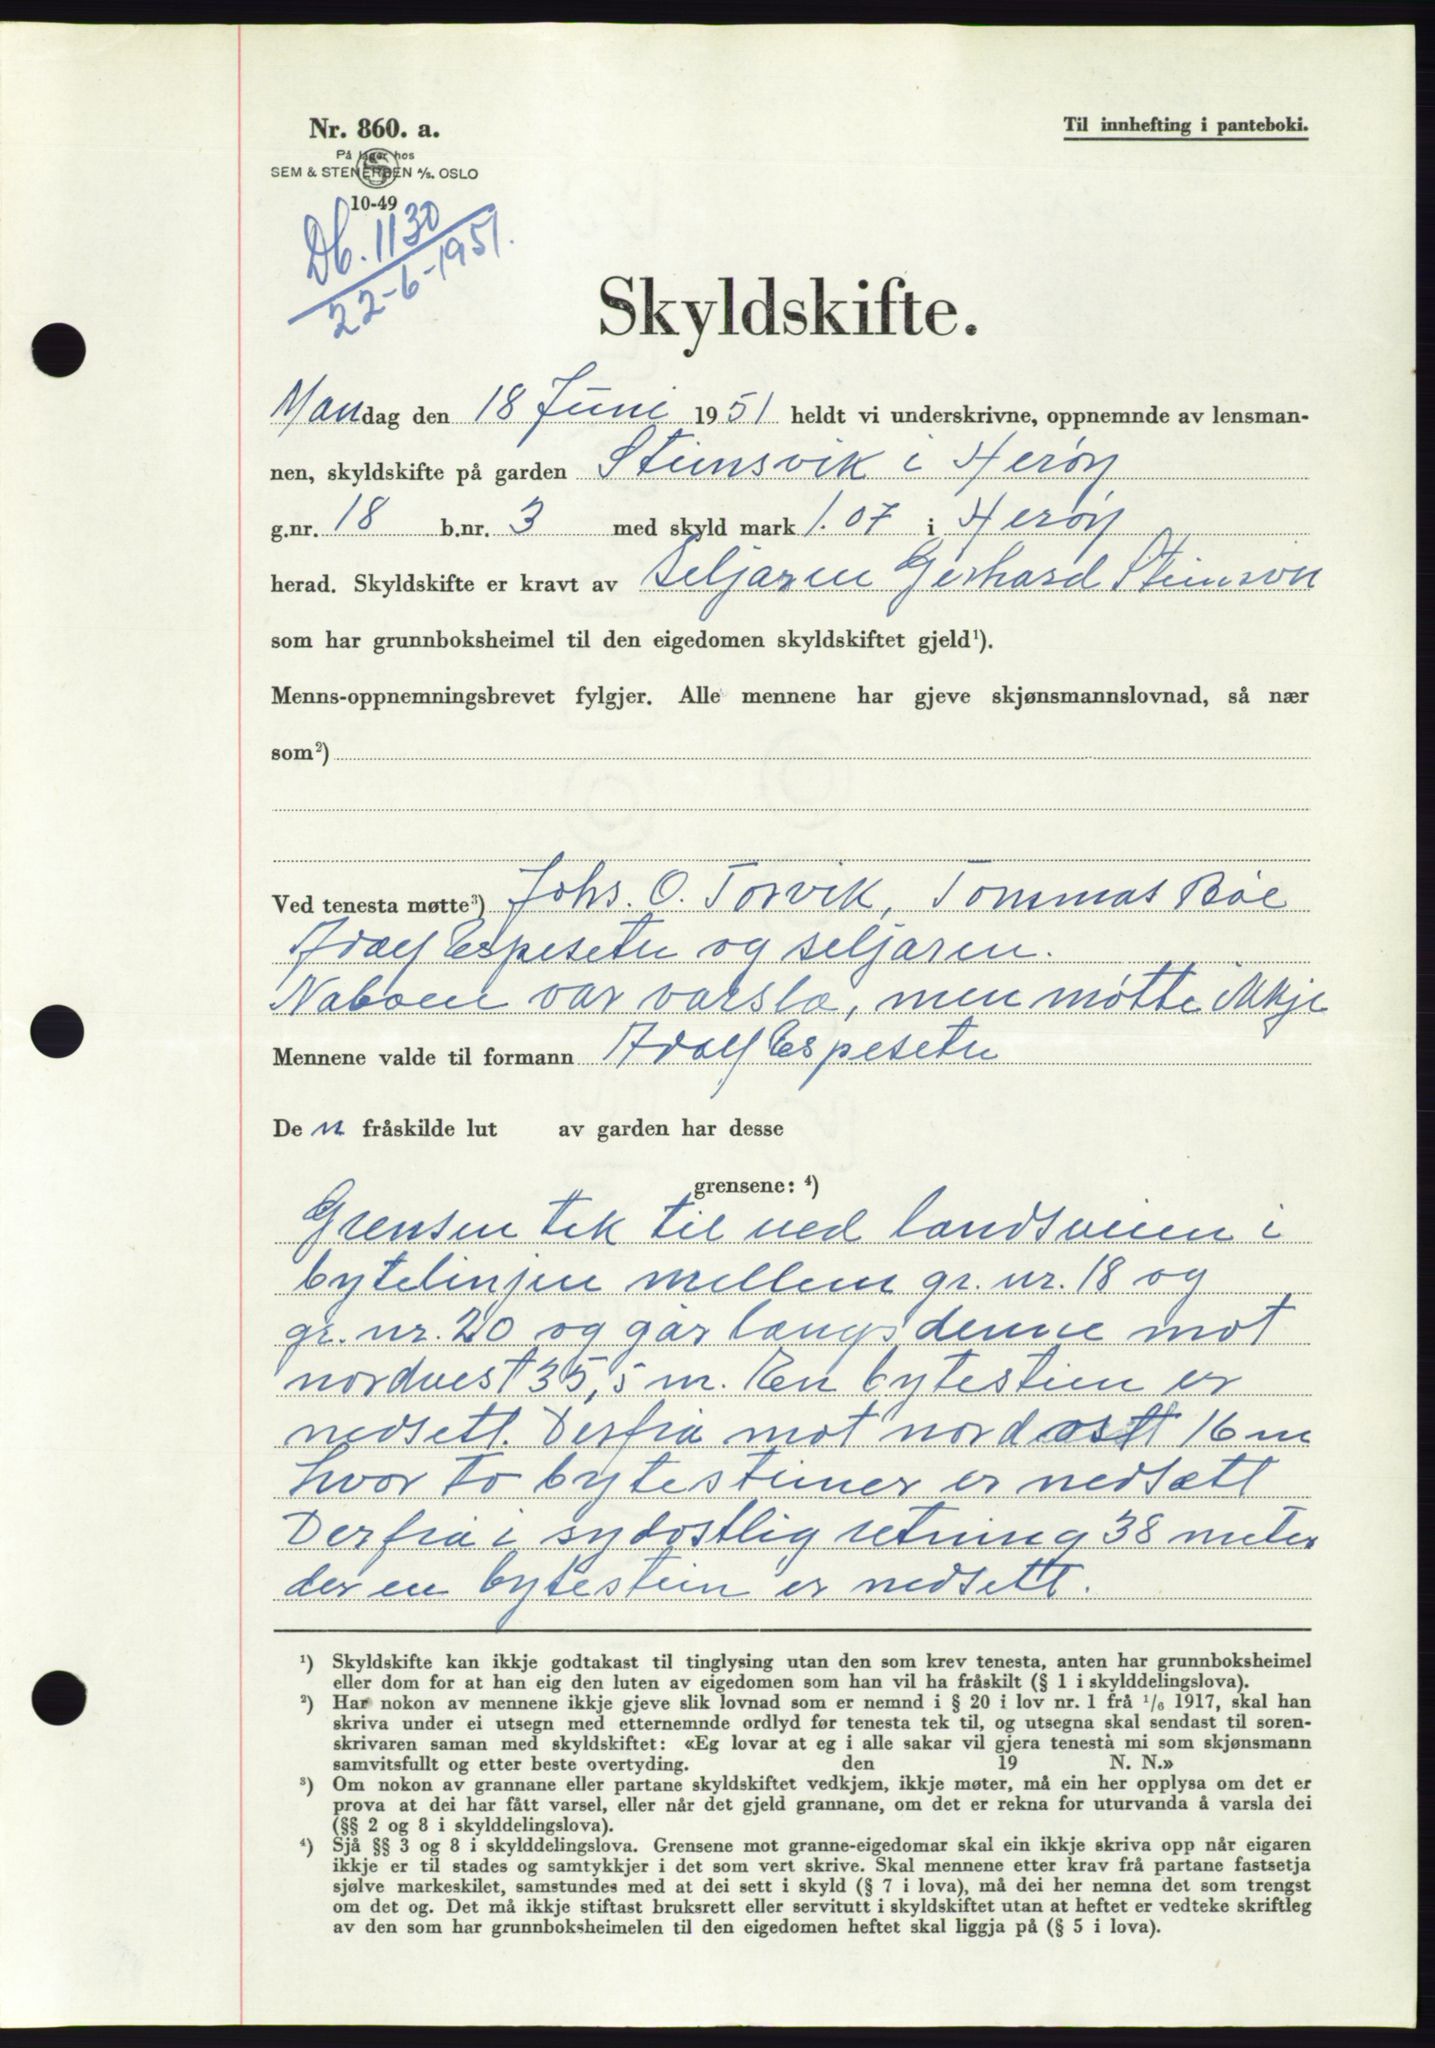 Nr. 860. a.
Til innhefting i panteboki.
På lager hos
SEM & STENERSEN A/S. OSLO
10-49
Db. 1130
22-6-1951.
Skyldskifte.
Mandag den 18 Juni 1951 heldt vi underskrivne, oppnemnde av lensman-
nen, skyldskifte på garden Steinsvik i Herøy
g.nr. 18 b.nr. 3 med skyld mark 1.07 i Herøy
herad. Skyldskifte er kravt av Seljaren Gerhard Steinsvik
som har grunnboksheimel til den eigedomen skyldskiftet gjeld¹).
Menns-oppnemningsbrevet fylgjer. Alle mennene har gjeve skjønsmannslovnad, så nær
som²)
Ved tenesta møtte³) Johs. O. Torvik, Tommas Bøe
Adolf Espeseter og seljaren.
Naboen var varsla, men møtte ikkje
Mennene valde til formann Adolf Espeseter
De n fråskilde lut av garden har desse
grensene: ⁴)
Grensen tek til ved landsveien i
bytelinjen mellem gr. nr. 18 og
gr. nr. 20 og går langs denne mot
nordvest 35,5 m. En bytestein er
nedsett. Derfrå mot nordost 16 m
hvor to bytesteiner er nedsatt
Derfrå i sydøstlig retning 38 meter
der en bytestein er nedsett.
¹) Skyldskifte kan ikkje godtakast til tinglysing utan den som krev tenesta, anten har grunnboksheimel
eller dom for at han eig den luten av eigedomen som han vil ha fråskilt (§ 1 i skylddelingslova).
²) Har nokon av mennene ikkje gjeve slik lovnad som er nemnd i § 20 i lov nr. 1 frå ¹/₆ 1917, skal han
skriva under ei utsegn med etternemnde ordlyd før tenesta tek til, og utsegna skal sendast til soren-
skrivaren saman med skyldskiftet: «Eg lovar at eg i alle sakar vil gjera tenestå mi som skjønsmann
samvitsfullt og etter beste overtyding. den 19 N. N.»
³) Om nokon av grannane eller partane skyldskiftet vedkjem, ikkje møter, må ein her opplysa om det er
prova at dei har fått varsel, eller når det gjeld grannane, om det er rekna for uturvanda å varsla dei
(§§ 2 og 8 i skylddelingslova).
⁴) Sjå §§ 3 og 8 i skylddelingslova. Grensene mot granne-eigedomar skal ein ikkje skriva opp når eigaren
ikkje er til stades og samtykkjer i det som vert skrive. Skal mennene etter krav frå partane fastsetja
sjølve markeskilet, samstundes med at dei sett i skyld (§ 7 i lova), må dei her nemna det som trengst
om det og. Det må ikkje stiftast bruksrett eller servitutt i skyldskiftet utan at heftet er vedteke skriftleg
av den som har grunnboksheimelen til den eigedomen heftet skal liggja på (§ 5 i lova).